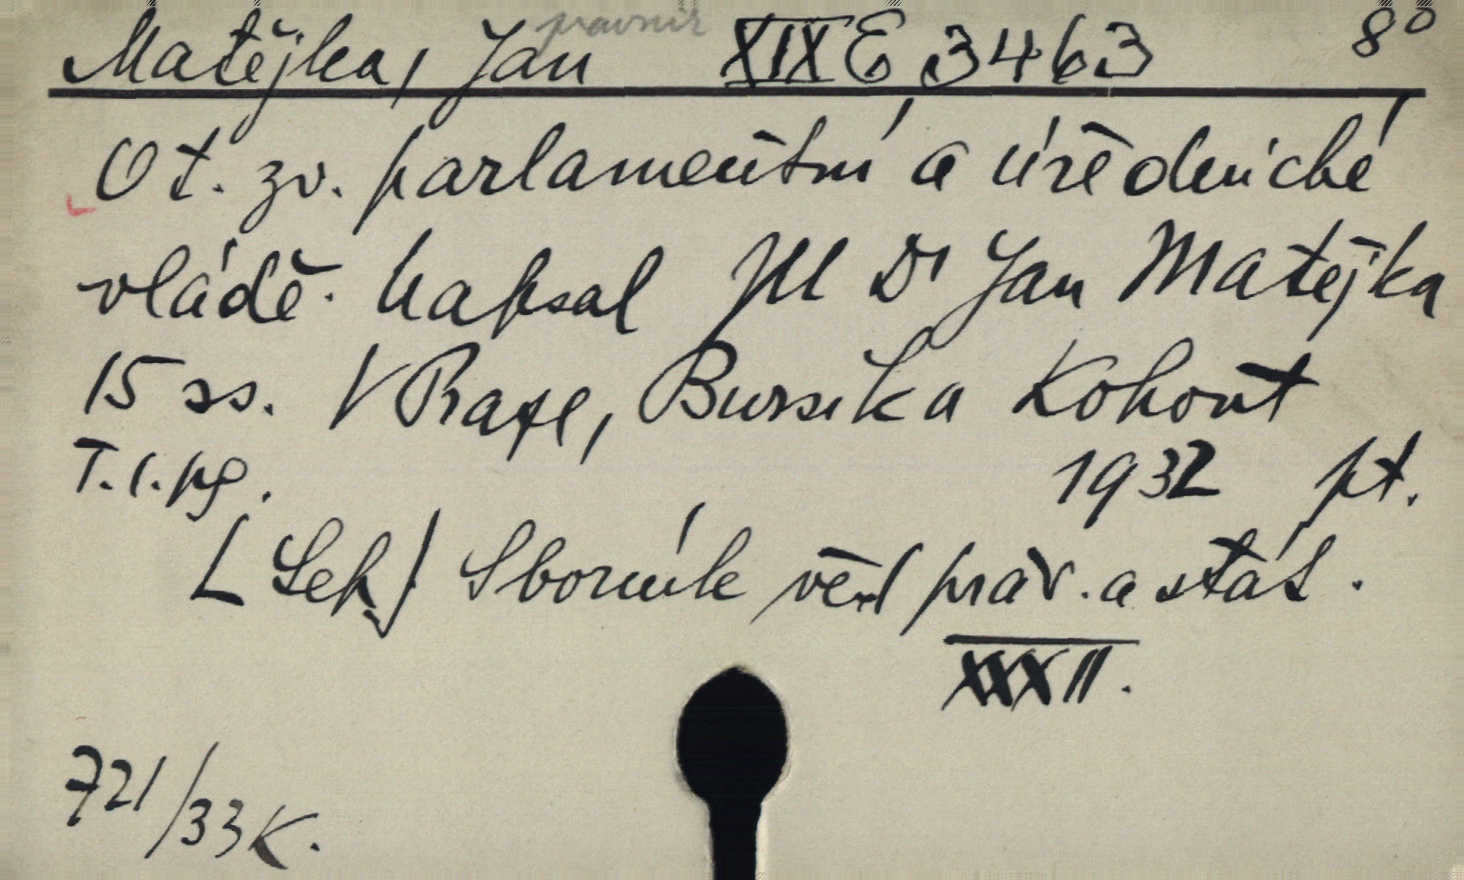 Matějka, Jan právník XIX E 3463 8°
O t. zv. parlamentní a úřednické
vládě. Napsal JUDr Jan Matějka
15 ss. V Praze, Bursík a Kohout
T.
1932 pt.
[Seh] Sborník věd práv. a stát.
XXXII.
721/33 K.